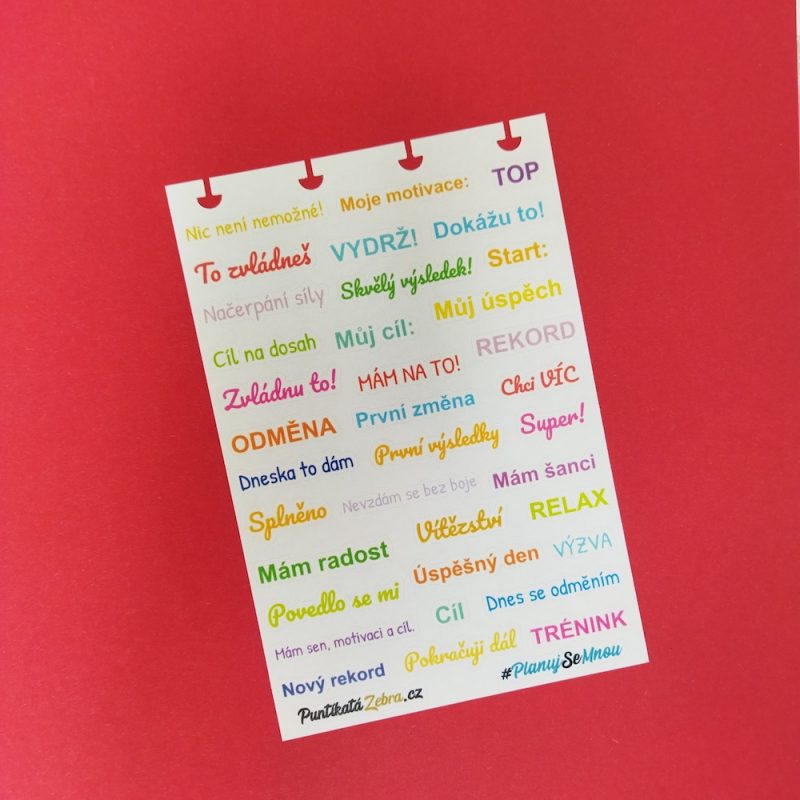 Nic není nemožné! Moje motivace: TOP
To zvládneš VYDRŽ! Dokážu to!
Načerpání síly Skvělý výsledek! Start:
Cíl na dosah Můj cíl: Můj úspěch
Zvládnu to! MÁM NA TO! REKORD
ODMĚNA První změna Chci VÍC
Dneska to dám První výsledky Super!
Splněno Nevzdám se bez boje Mám šanci
Mám radost Vítězství RELAX
Povedlo se mi Úspěšný den VÝZVA
Mám sen, motivaci a cíl. Cíl Dnes se odměním
Nový rekord Pokračuji dál TRÉNINK
PuntíkatáZebra.cz #PlanujSeMnou